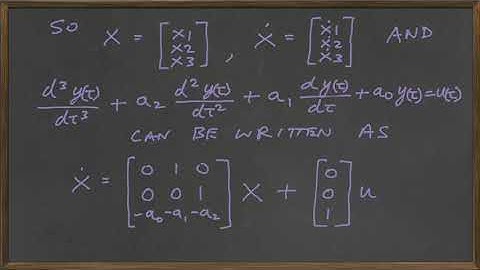 SO X = [x1 x2 x3], Ẋ = [ẋ1 ẋ2 ẋ3] AND
d³y(t)/dt³ + a₂ d²y(t)/dt² + a₁ dy(t)/dt + a₀y(t) = u(t)
CAN BE WRITTEN AS
Ẋ = [0 1 0; 0 0 1; -a₀ -a₁ -a₂] X + [0; 0; 1] u